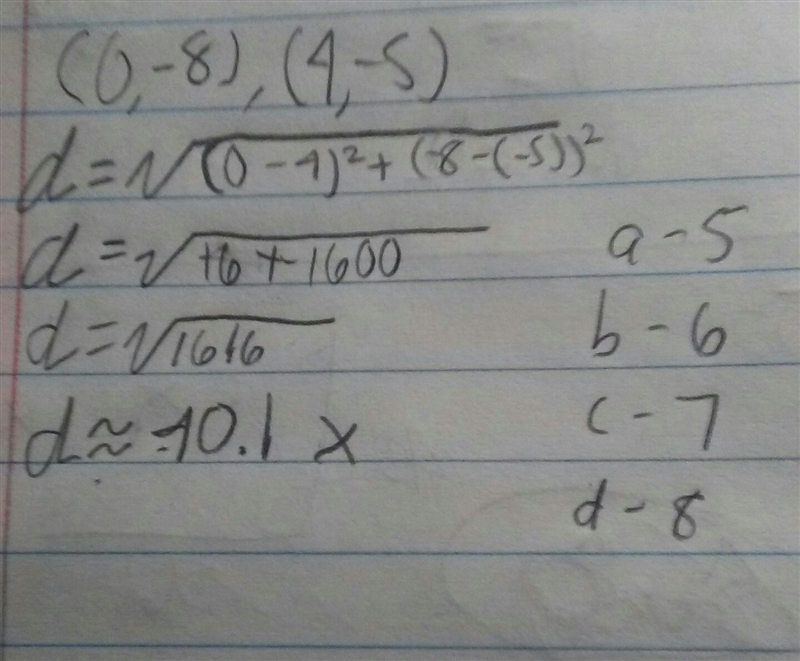 (0,-8), (4,-5)
d=√(0-4)²+(-8-(-5))²
d=√16+1600
d=√1616
d≈40.1 x
a-5
b-6
c-7
d-8